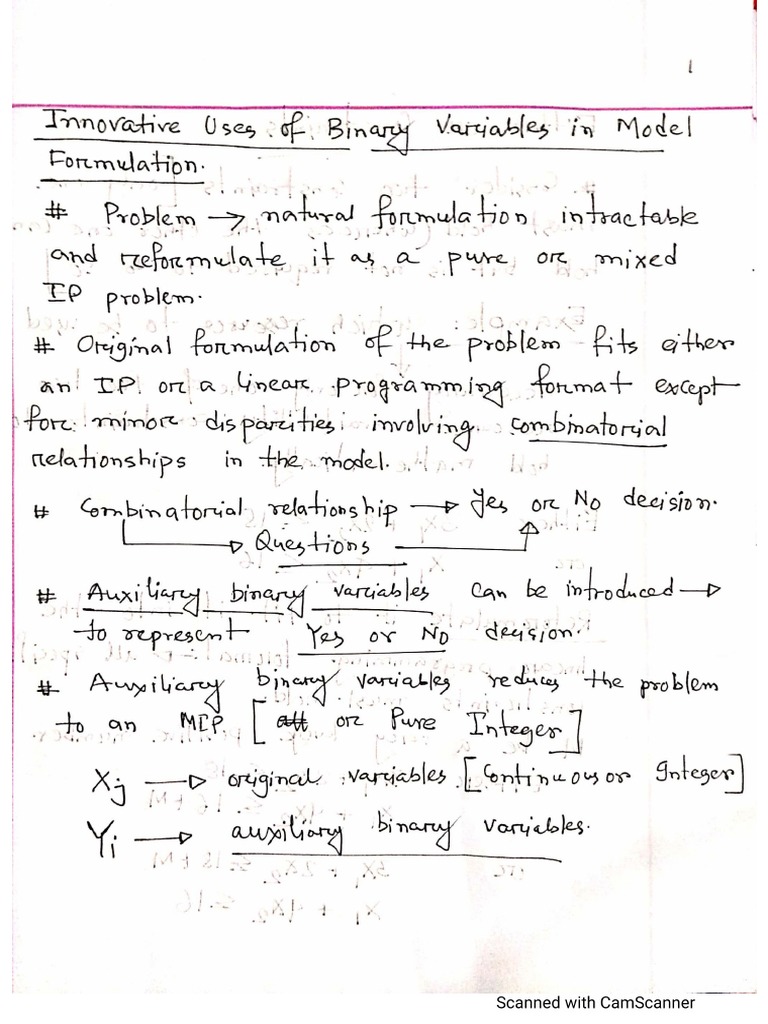 1
Innovative Uses of Binary Variables in Model
Formulation.
# Problem → natural formulation intractable
and reformulate it as a pure or mixed
IP problem.
# Original formulation of the problem fits either
an IP or a linear programming format except
for minor disparities involving combinatorial
relationships in the model.
# Combinatorial relationship → Yes or No decision.
→ Questions
# Auxiliary binary variables can be introduced →
to represent Yes or No decision.
# Auxiliary binary variables reduces the problem
to an MIP [or Pure Integer]
Xj → original variables [Continuous or Integer]
Yi → auxiliary binary variables.
Scanned with CamScanner